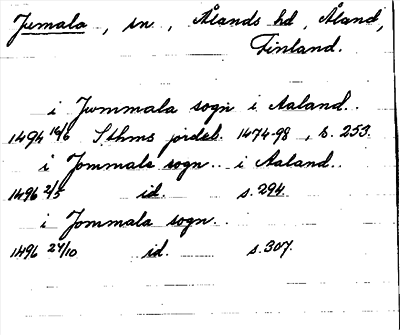 Jumala, sn, Ålands hd, Åland,
Finland.
i Jwmmala sogn i Aaland..
1494 16/6 Sthms jordeb. 1474-98, s. 253.
i Jommala sogn.. i Aaland..
1496 2/5 id. s. 294.
i Jommala sogn..
1496 24/10 id. s. 307.